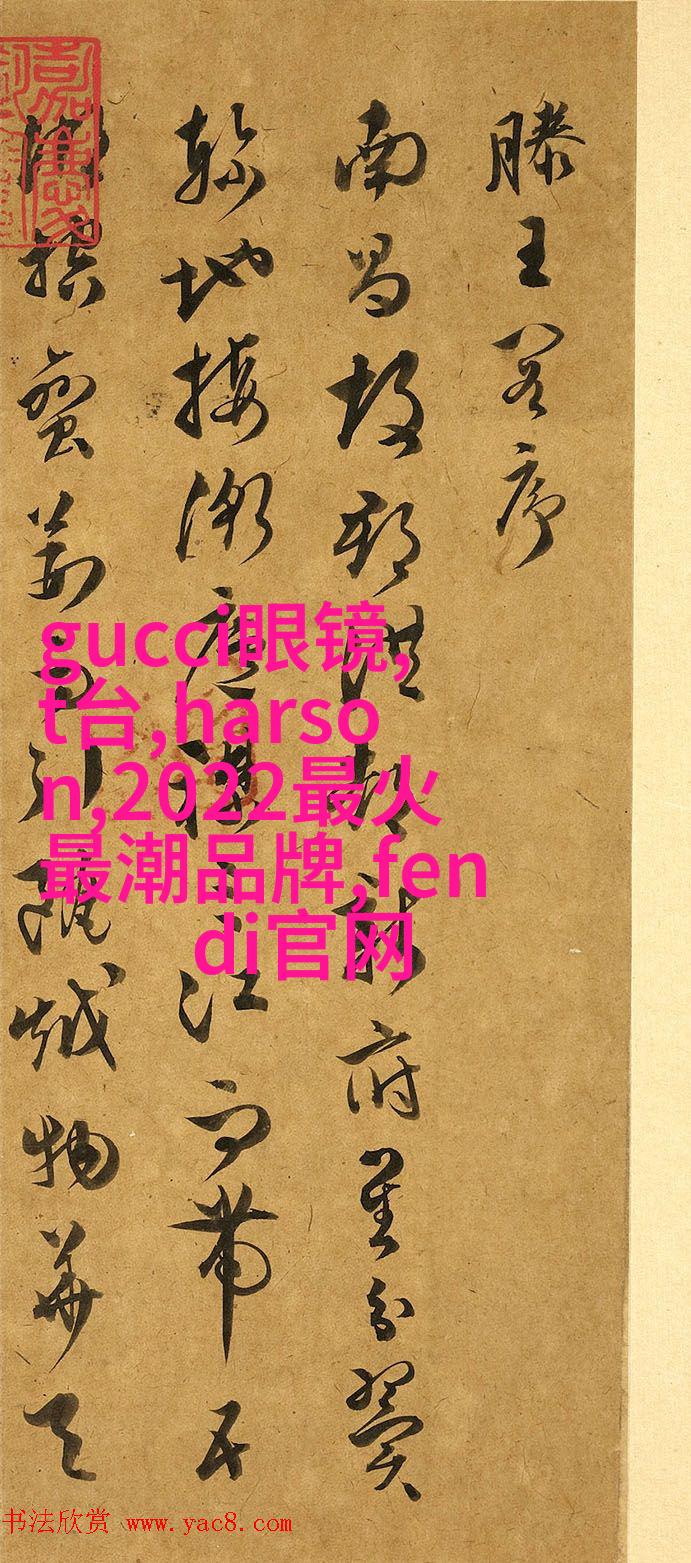 滕王閣序
南昌故郡洪都新府星分翼
軫地接衡廬襟三江而帶五
湖控蠻荊而引甌越物華天
gucci眼镜,
t台,harso
n,2022最火
最潮品牌,fen
di官网
书法欣赏 www.yac8.com